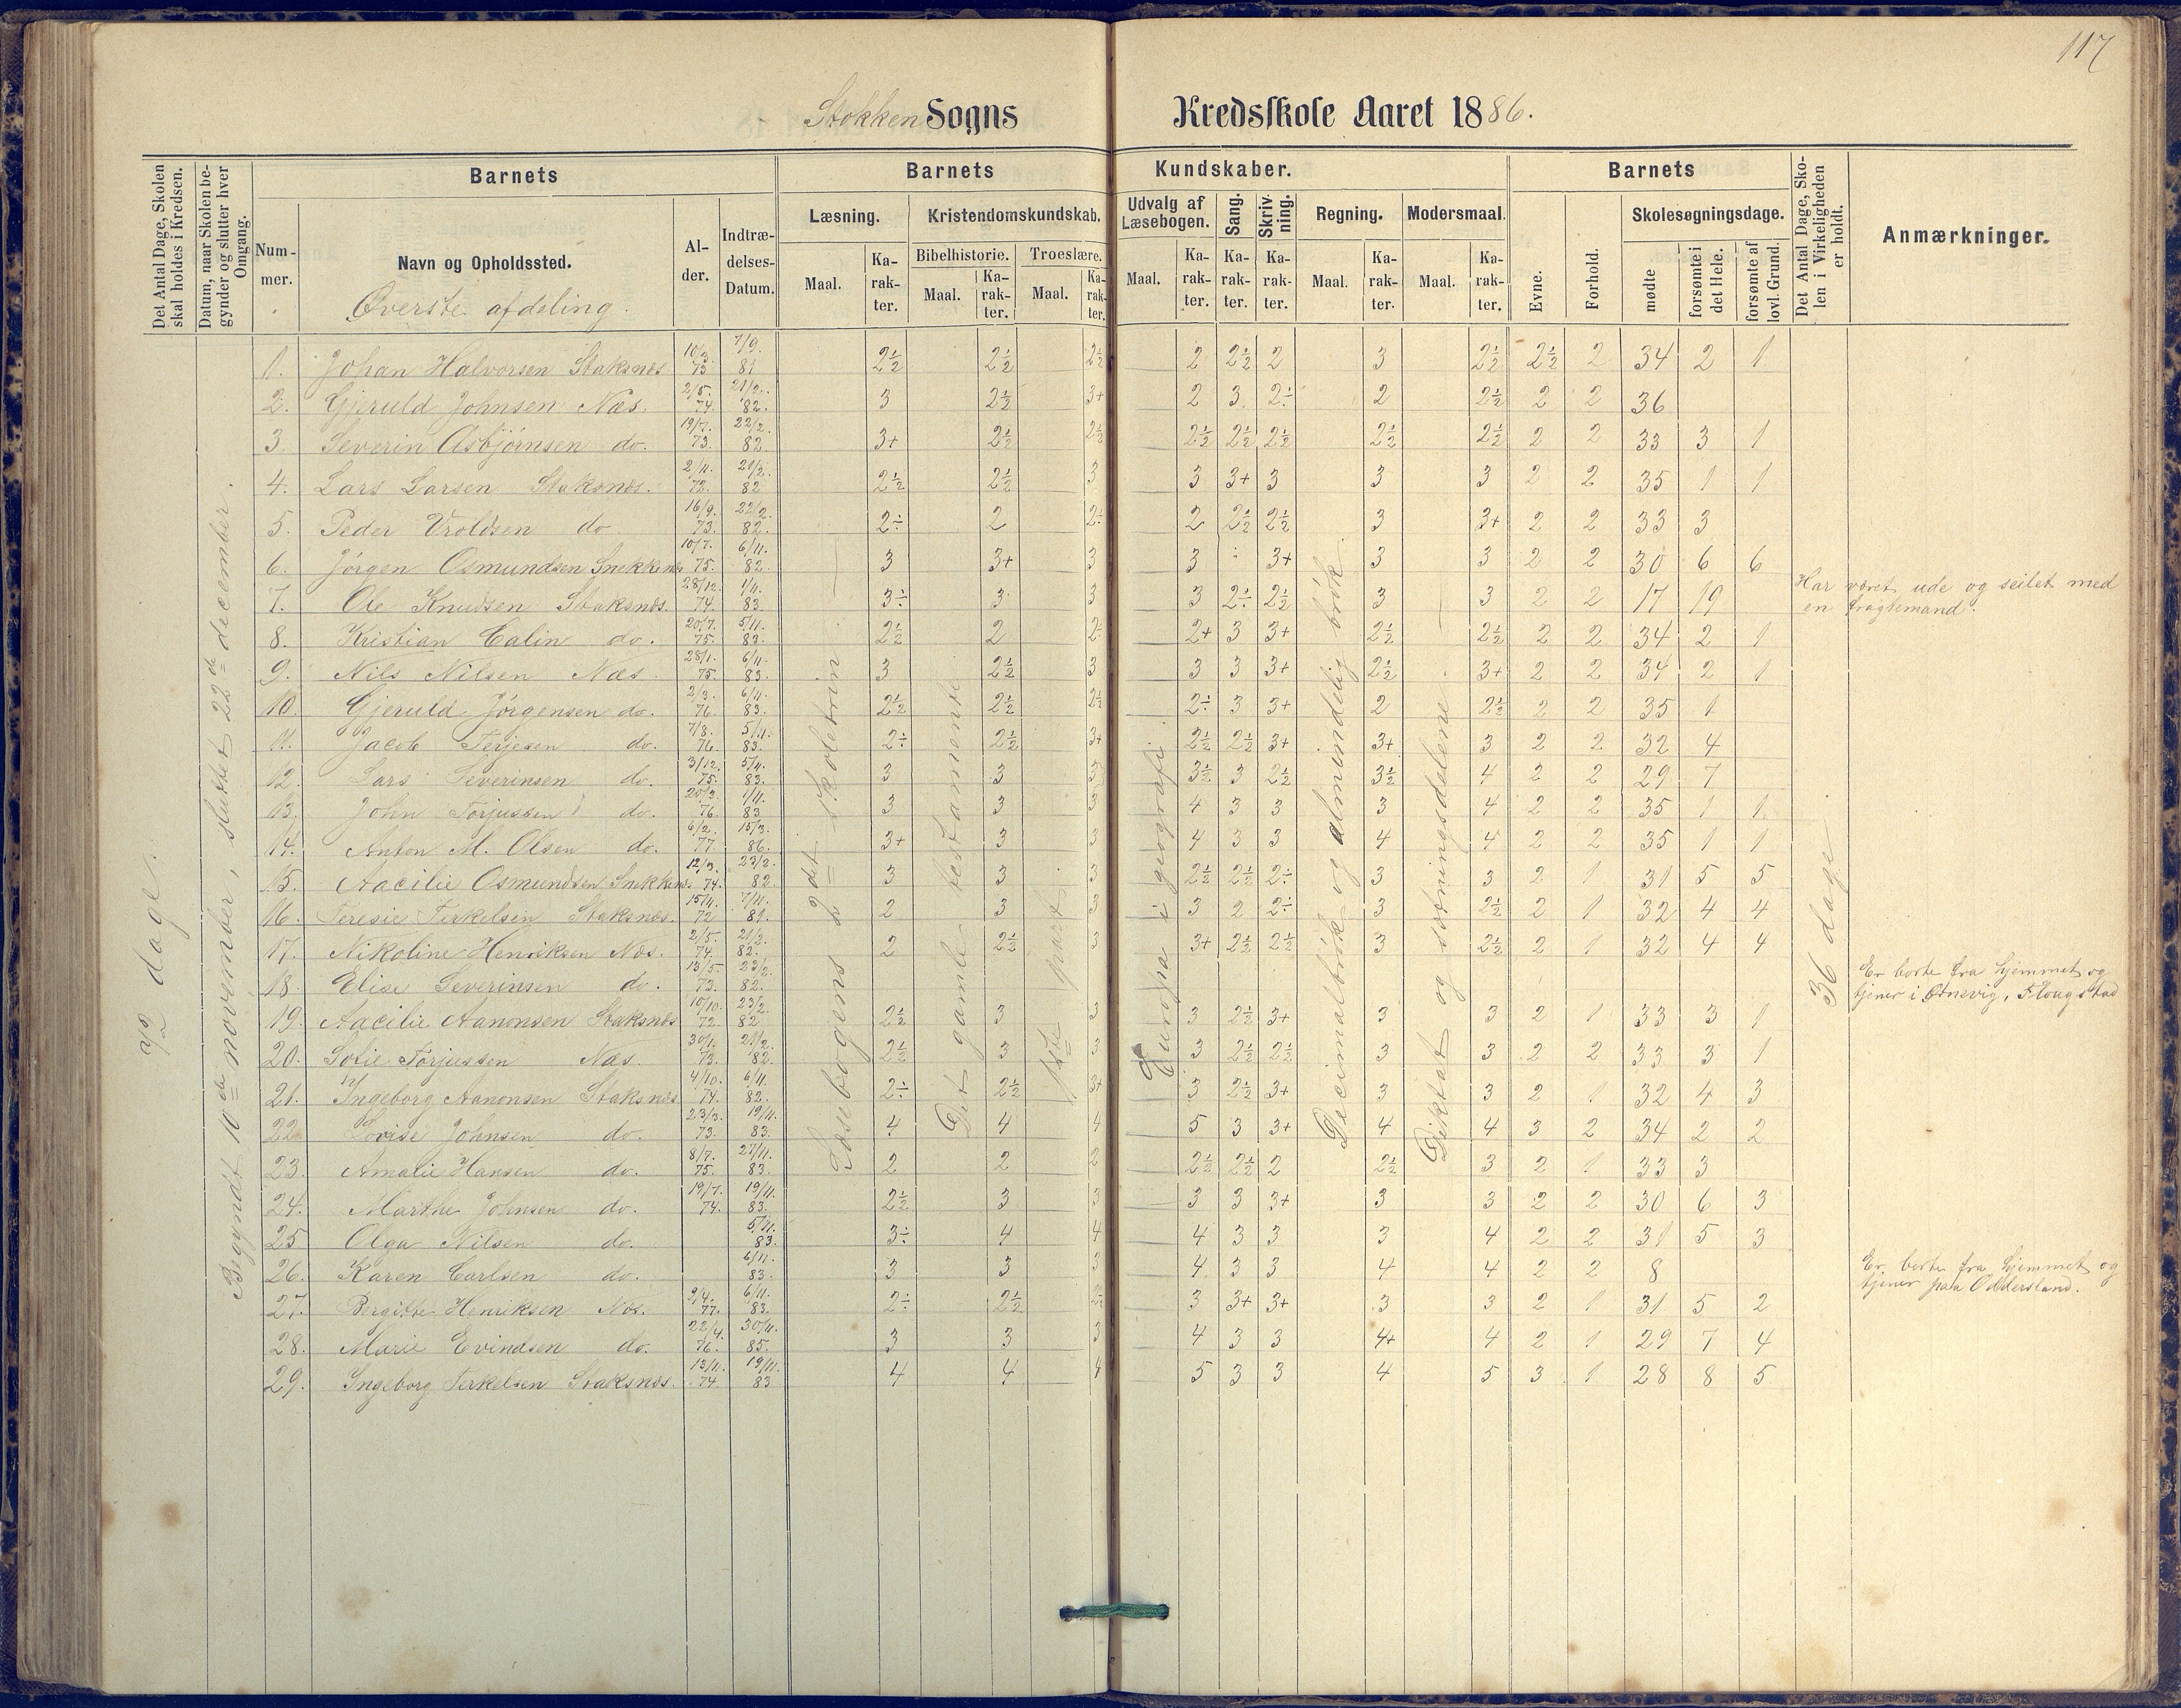 117
Stokken Sogns Kredsskole Aaret 1886.
Det Antal Dage, Skolen skal holdes i Kredsen.
Datum, naar Skolen begynder og slutter hver Omgang.
Barnets
Nummer.
Navn og Opholdssted.
Øverste afdeling.
Alder.
Indtrædelses-Datum.
Barnets Kundskaber.
Læsning.
Maal.
Karakter.
Kristendomskundskab.
Bibelhistorie.
Maal.
Karakter.
Troeslære.
Maal.
Karakter.
Udvalg af Læsebogen.
Maal.
Karakter.
Sang.
Karakter.
Skrivning.
Karakter.
Regning.
Maal.
Karakter.
Modersmaal.
Maal.
Karakter.
Barnets
Evne.
Forhold.
Skolesøgningsdage.
mødte
forsømte i det Hele.
forsømte af lovl. Grund.
Det Antal Dage, Skolen i Virkeligheden er holdt.
Anmærkninger.
72 dage.
Begyndt 10de november, sluttet 22de december.
Læsebogens 2det skoletrin
Det gamle testamente
1ste part
Europa i geografi.
Decimalbrøk og almindelig brøk.
Diktat og sætningsdelene
36 dage
1. Johan Halvorsen Staksnæs 10/3. 73 7/9. 81 2½ 2½ 2½ 2 2½ 2 3 2½ 2½ 2 34 2 1
2. Gjeruld Johnsen Næs. 2/5. 74. 21/2. 82. 3 2½ 3+ 2 3 2÷ 2 2½ 2 2 36
3. Severin Asbjørnsen do. 19/7. 73. 22/2. 82. 3+ 2½ 2½ 2½ 2½ 2½ 2½ 2½ 2 2 33 3 1
4. Lars Larsen Staksnæs. 2/11. 72. 21/2. 82 2½ 2½ 3 3 3+ 3 3 3 2 2 35 1 1
5. Peder Vroldsen do 16/9. 73. 22/2. 82. 2÷ 2 2÷ 2 2½ 2½ 3 3+ 2 2 33 3
6. Jørgen Osmundsen Snekkenes 10/7. 75. 6/11. 82. 3 3+ 3 3 ÷ 3+ 3 3 2 2 30 6 6
7. Ole Knudsen Staksnæs. 28/12. 74. 1/11. 83. 3÷ 3 3 3 2÷ 2½ 3 3 2 2 17 19 Har været ude og seilet med en fragtemand.
8. Kristian Calin do. 20/7. 75. 5/11. 83. 2½ 2 2÷ 2+ 3 3+ 2½ 2½ 2 2 34 2 1
9. Nils Nilsen Næs 28/1. 75. 6/11. 83. 3 2½ 3 3 3 3+ 2½ 3+ 2 2 34 2 1
10. Gjeruld Jørgensen do. 2/3. 76. 6/11. 83. 2½ 2½ 2½ 2÷ 3 3+ 2 2½ 2 2 35 1
11. Jacob Terjesen do. 7/8. 76. 5/11. 83. 2÷ 2½ 3+ 2½ 2½ 3+ 3+ 3 2 2 32 4
12. Lars Severinsen do. 3/12. 75. 5/11. 83. 3 3 3 3½ 3 2½ 3½ 4 2 2 29 7
13. John Torjussen do. 20/3. 76. 1/11. 83 3 3 3 4 3 3 3 4 2 2 35 1 1
14. Anton M. Olsen do. 6/2. 77 15/3. 86. 3+ 3 3 4 3 3 4 4 2 2 35 1 1
15. Aacilie Osmundsen Snekkenes 12/3. 74. 23/2. 82. 3 3 3 2½ 2½ 2÷ 3 3 2 1 31 5 5
16. Teresie Terkelsen Staksnæs. 15/4. 72 7/11. 81. 2 3 3 3 2 2÷ 3 2½ 2 1 32 4 4
17. Nikoline Henriksen Næs. 2/5. 74. 21/2. 82. 2 2½ 3 3+ 2½ 2½ 3 2½ 2 1 32 4 4
18. Elise Severinsen do. 13/5. 73. 23/2. 82. Er borte fra hjemmet og tjener i Ørnevig, Flougstad
19. Aacilie Aanonsen Staksnæs 10/10. 72. 23/2. 82 2½ 3 3 3 2½ 3+ 3 3 2 1 33 3 1
20. Sofie Torjussen Næs 30/1. 73. 21/2. 82. 2½ 3 3 3 2½ 2½ 3 3 2 2 33 3 1
21. Ingeborg Aanonsen Staksnæs. 4/10. 74. 6/11. 82. 2÷ 2½ 3+ 3 2½ 3+ 3 3 2 1 32 4 3
22. Lovise Johnsen do. 23/3. 73. 19/11. 83. 4 4 4 5 3 3+ 4 4 3 2 34 2 2
23. Amalie Hansen do. 8/7. 75. 27/11. 83. 2 2 2 2½ 2½ 2 2½ 3 2 1 33 3
24. Marthe Johnsen do. 19/7. 74. 19/11. 83. 2½ 3 3 3 3 3+ 3 3 2 2 30 6 3
25. Olga Nilsen do. 5/11. 83. 3÷ 4 4 4 3 3 3 4 2 2 31 5 3
26. Karen Carlsen do. 6/11. 83. 3 3 3 4 3 3 4 4 2 2 8 Er borte fra hjemmet og tjener paa Oddersland.
27. Bergitte Henriksen Næs. 9/4. 77. 6/11. 83. 2÷ 2½ 2½ 3 3+ 3+ 3 3 2 1 31 5 2
28. Marie Evindsen do. 22/4. 76. 30/11. 85. 3 3 3 4 3 3 4+ 4 2 1 29 7 4
29. Ingeborg Terkelsen Staksnæs. 13/11. 74. 19/11. 83 4 4 4 5 3 3 4 5 3 1 28 8 5